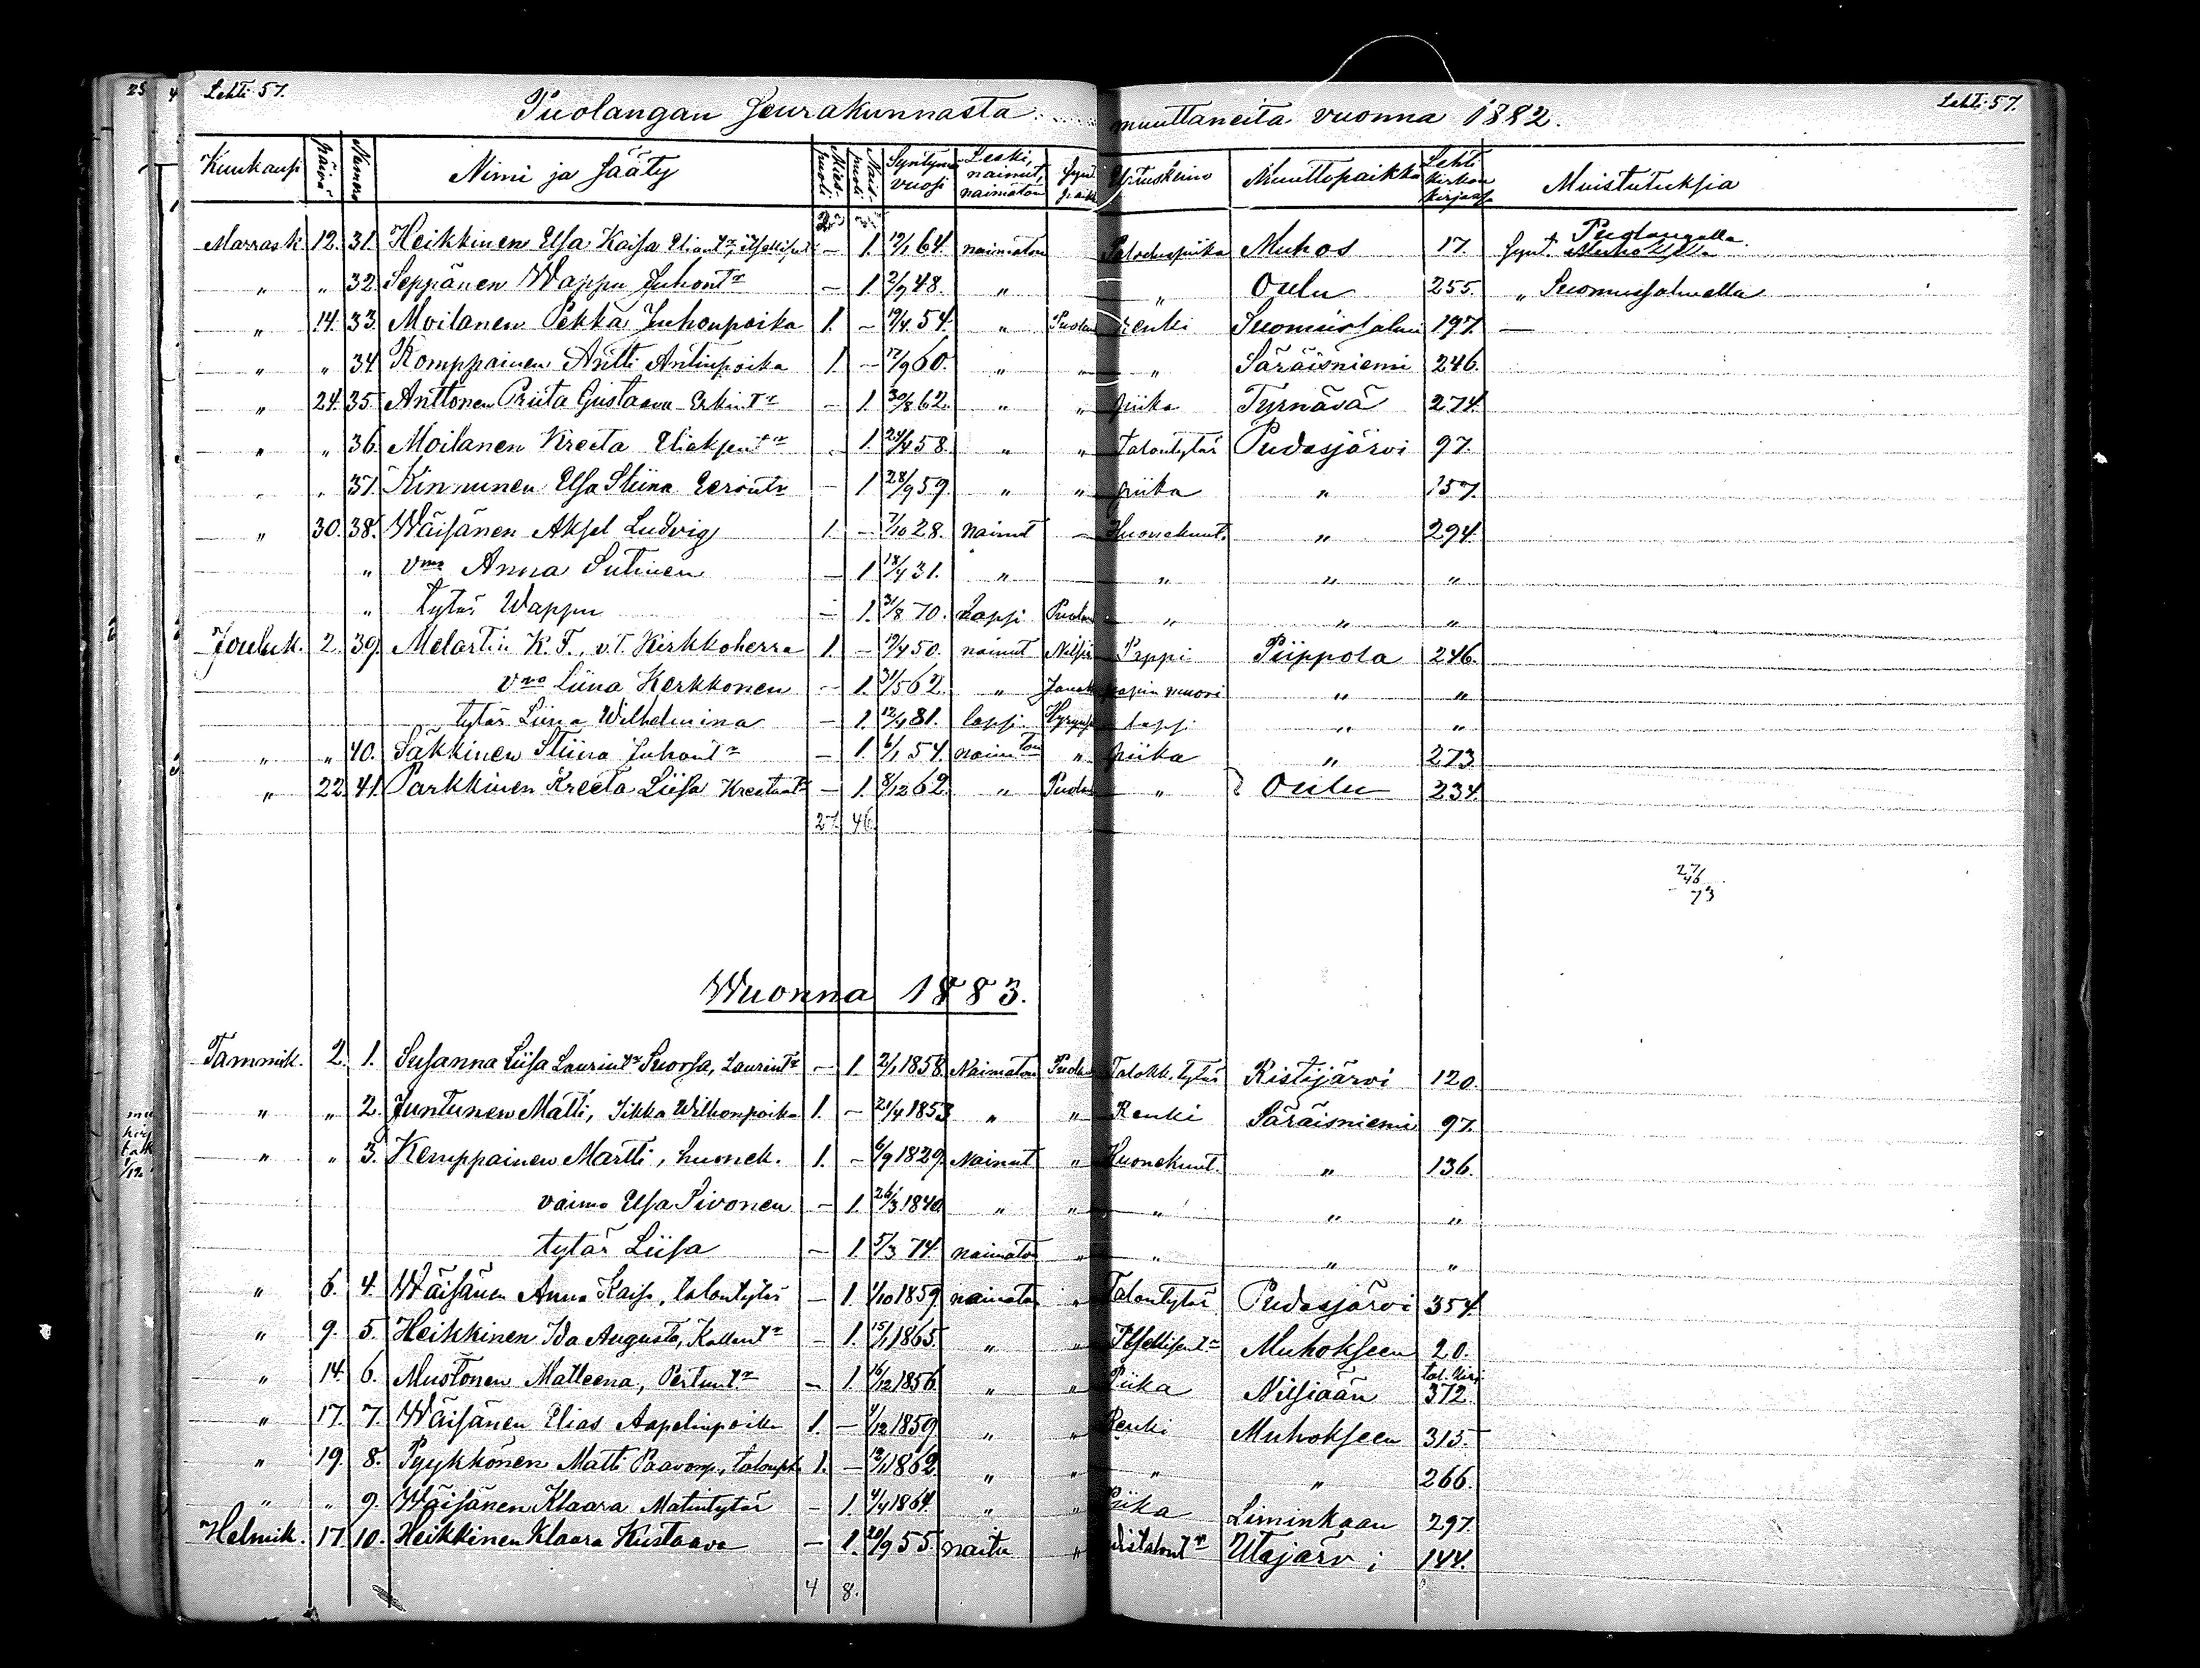 Lehti 57.
Lehti 57.
Puolangan Seurakunnasta muuttaneita vuonna 1882.
Kuukausi Päivä Numero Nimi ja Sääty Mies-puoli. Nais-puoli. Syntymä vuosi Leski, nainut, naimaton Synt. paikk Muuttopaikka Lehti kirkon kirjassa Muistutuksia
Marrask. 12. 31. Heikkinen Elsa Kaisa – 1. 64. naimaton Muhos 17. Synt. Puolangalla
" " 32. Seppänen Wappu Juhont:r – 1 2/9 48. " " Oulu 255. " Suomussalmella
" 14. 33. Moilanen Pekka Juhonpoika 1. – 54. " Puolan renki Suomussalmi 197. —
" " 34. Komppainen Antti Antinpoika 1. – 17/9 60. " " " Säräisniemi 246.
" 24. 35. Anttonen Priita Gustaava Erkint:r – 1. 30/8 62. " " piika Tyrnävä 274.
" " 36. Moilanen Kreeta – 1. 24/4 58. " " Talontytär Pudasjärvi 97.
" " 37. Kinnunen Elsa Stiina – 1 28/9 59. " " piika " 157.
" 30. 38. Wäisänen Aksel Ludvig 1. – 7/10 28. nainut – Huonekunt. " 294.
" v:mo Anna Sutinen – 1 18/4 31. " " " "
" tytär Wappu – 1. 31/8 70. lapsi Puolan " " "
Jouluk. 2. 39. Melartin K. F., v.t. Kirkkoherra 1. – 19/4 50. nainut Nilsiä Pappi Piippola 246.
v:mo Liina Kerkkonen – 1. 31/5 62. " " "
tytär Liina Wilhelmina – 1. 12/4 81. lapsi lapsi " "
" " 40. Säkkinen Stiina Juhont:r – 1. 6/1 54. naimton " piika " 273
" 22. 41. Parkkinen Kreeta Liisa – 1. 8/12 62. " Puolan " Oulu 234.
27. 46.
27
46
73
Wuonna 1883.
Tammik. 2. 1. Susanna Liisa Laurint:r Suorsa, Laurint:r – 1. 2/1 1858. Naimaton Puolan Talokk. tytär Ristijärvi 120.
" " 2. Juntunen Matti, 1. – 21/4 1853 " " Renki Säräisniemi 97.
" " 3. Kemppainen Martti, huonek. 1. – 6/9 1829. Nainut " Huonekunt. " 136.
vaimo Elsa Piironen – 1. 26/3 1840 " " " " "
tytär Liisa – 1. 5/3 74. naimaton " " " "
" 6. 4. Wäisänen Anna Kaisa, talontytär – 1. 1/10 1859 naimaton " Talontytär Pudasjärvi 354.
" 9. 5. Heikkinen Ida Augusta, – 1. 15/1 1865. " " Itsellisent:r Muhokseen 20.
" 14. 6. Mustonen Matleena, Pertunt:r – 1. 16/12 1856. " " Piika Nilsiään 312.
" 17. 7. Wäisänen Elias Aapelinpoika 1. – 1859 " " Renki Muhokseen 315.
" 19. 8. Pyykkönen Matti Paavonp., 1. – 1862 " " " " 266.
" " 9. Wäisänen Klaara Matintytär – 1. 4/4 1864. " " Piika Liminkaan 297.
Helmik. 17. 10. Heikkinen Klaara Kustaava – 1. 20/9 55. naitu " Utajärvi 144.
4 8.